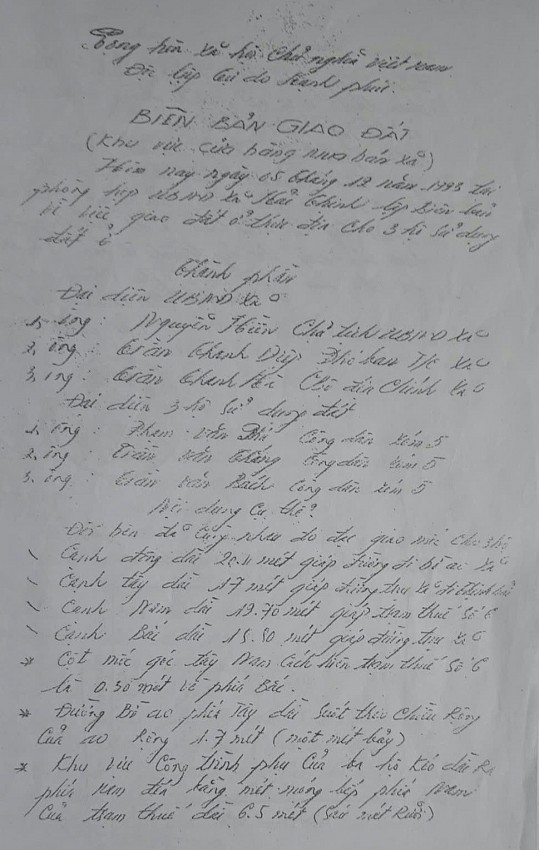 Cộng hòa xã hội chủ nghĩa việt nam
Độc lập tự do hạnh phúc
BIÊN BẢN GIAO ĐẤT
(Khu vực cửa hàng mua bán xã)
Hôm nay ngày 05 tháng 12 năm 1993 tại
phòng họp UBND xã Hải Thịnh lập biên bản
về việc giao đất ở thực địa cho 3 hộ sử dụng
đất ở
Thành phần
Đại diện UBND xã
1, ông: Nguyễn Hiên Chủ tịch UBND xã
2, ông: Trần Thanh Diệp Phó ban xã
3, ông: Trần Thanh địa chính xã
Đại diện 3 hộ sử dụng đất
1. ông: Phạm Văn Công dân xóm 5
2. ông: Trần Văn Thắng Công dân xóm 5
3. ông: Trần Văn Công dân xóm 5
Nội dung cụ thể?
Đôi bên đã cùng nhau đo đạc giao mốc cho 3 hộ
\ Cạnh đông dài mét giáp đường đi bờ ao xã
\ Cạnh tây dài 17 mét giáp đường xã đi
\ Cạnh Nam dài 19.70 mét giáp trạm thuế số 6
\ Cạnh Bắc dài mét giáp đường xã
* Cột mốc góc tây Nam cách hiên trạm thuế số 6
là 0.30 mét về phía Bắc.
* Đường Bờ ao phía Tây dài suốt theo chiều Rộng
của ao Rộng 1.7 mét (một mét bảy)
* Khu vực công trình phụ của ba hộ kéo dài Ra
phía Nam đến bằng mét móng bếp phía Nam
của trạm thuế dài 6.5 mét (Sáu mét Rưỡi)